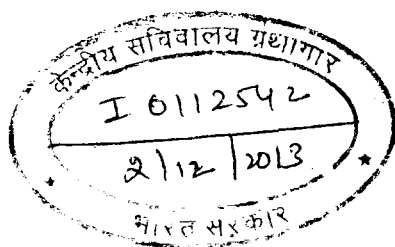 केन्द्रीय सचिवालय ग्रंथागार
I 0112542
2/12/2013
भारत सरकार